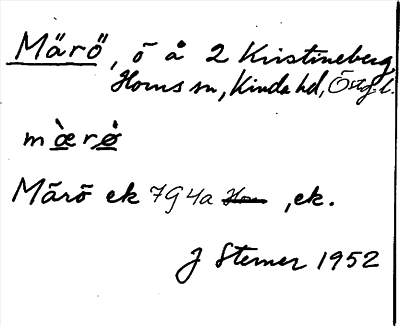 Märö, ö å 2 Kristineberg
Horns sn, Kinda hd, Östg. l.
mœ̀rø̀
Märö ek 7G4a ,ek.
J Sterner 1952